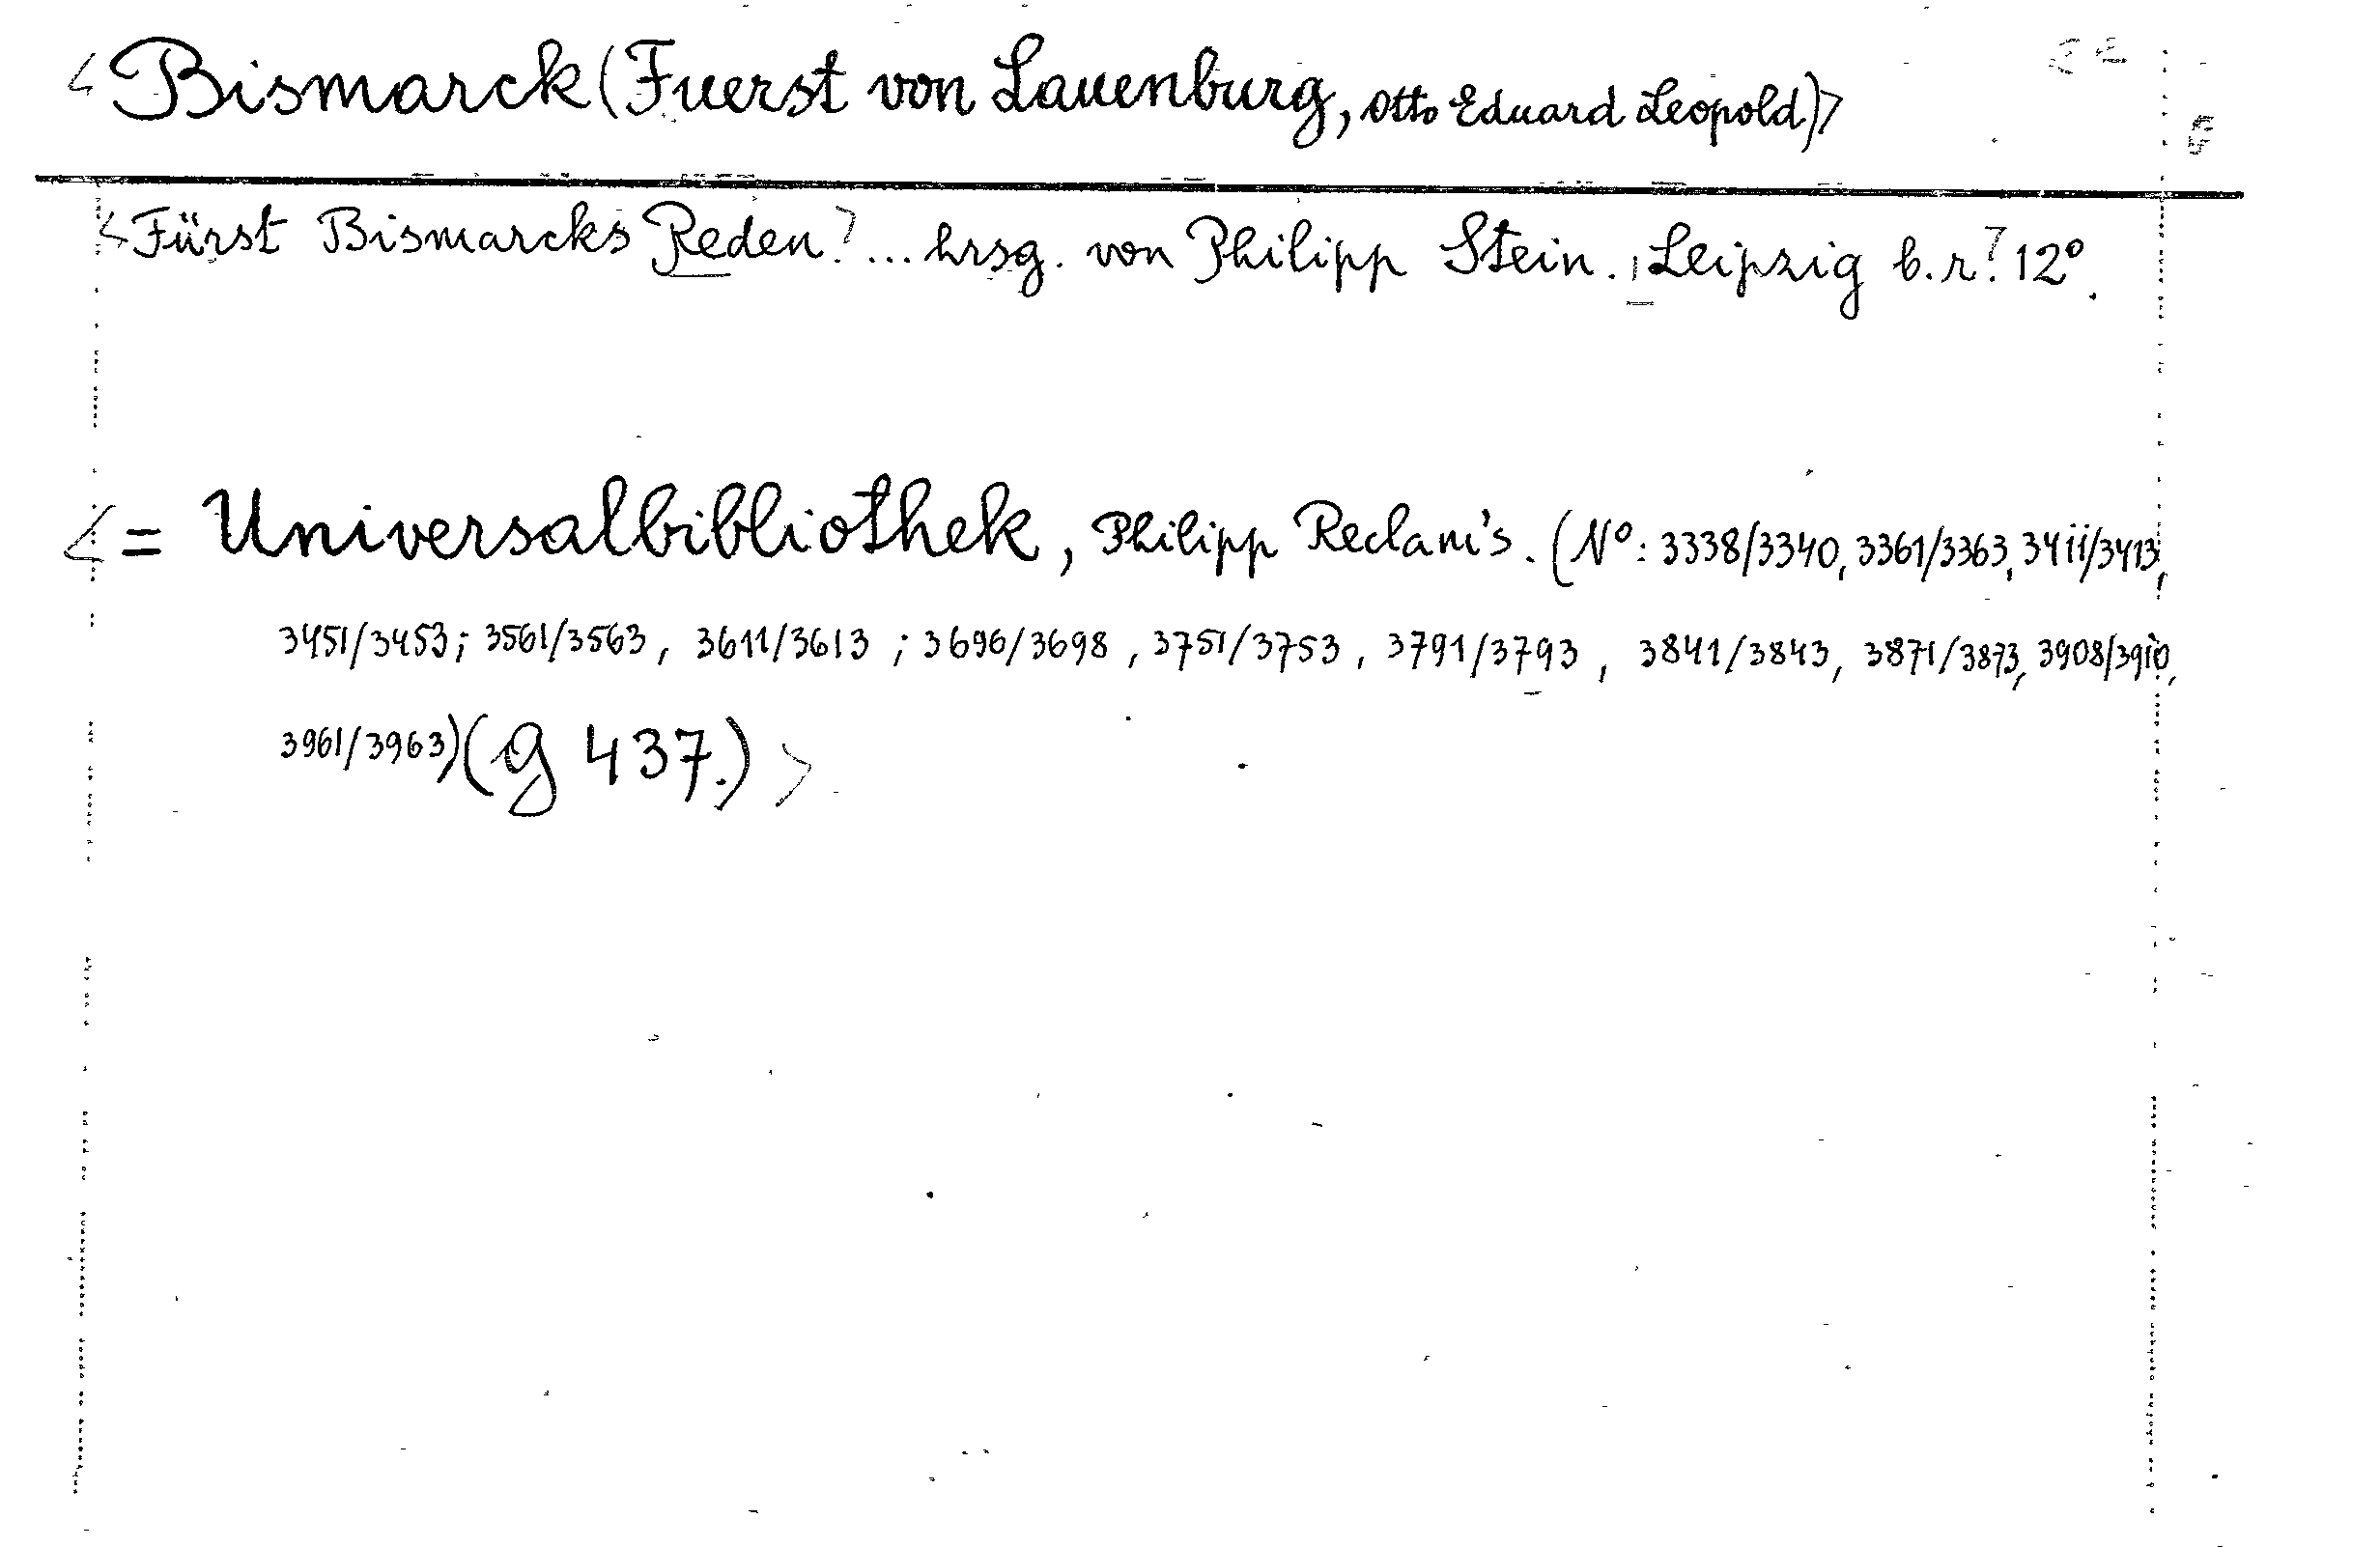 <Bismarck (Fuerst von Lauenburg, Otto Eduard Leopold)>
<Fürst Bismarcks Reden> ... hrsg. von Philipp Stein. Leipzig b.r.> 12°.
<= Universalbibliothek, Philipp Reclam's. (N°: 3338/3340, 3361/3363, 3411/3413,
3451/3453; 3561/3563, 3611/3613; 3696/3698, 3751/3753, 3791/3793, 3841/3843, 3871/3873, 3908/3910,
3961/3963) (g 437.) >